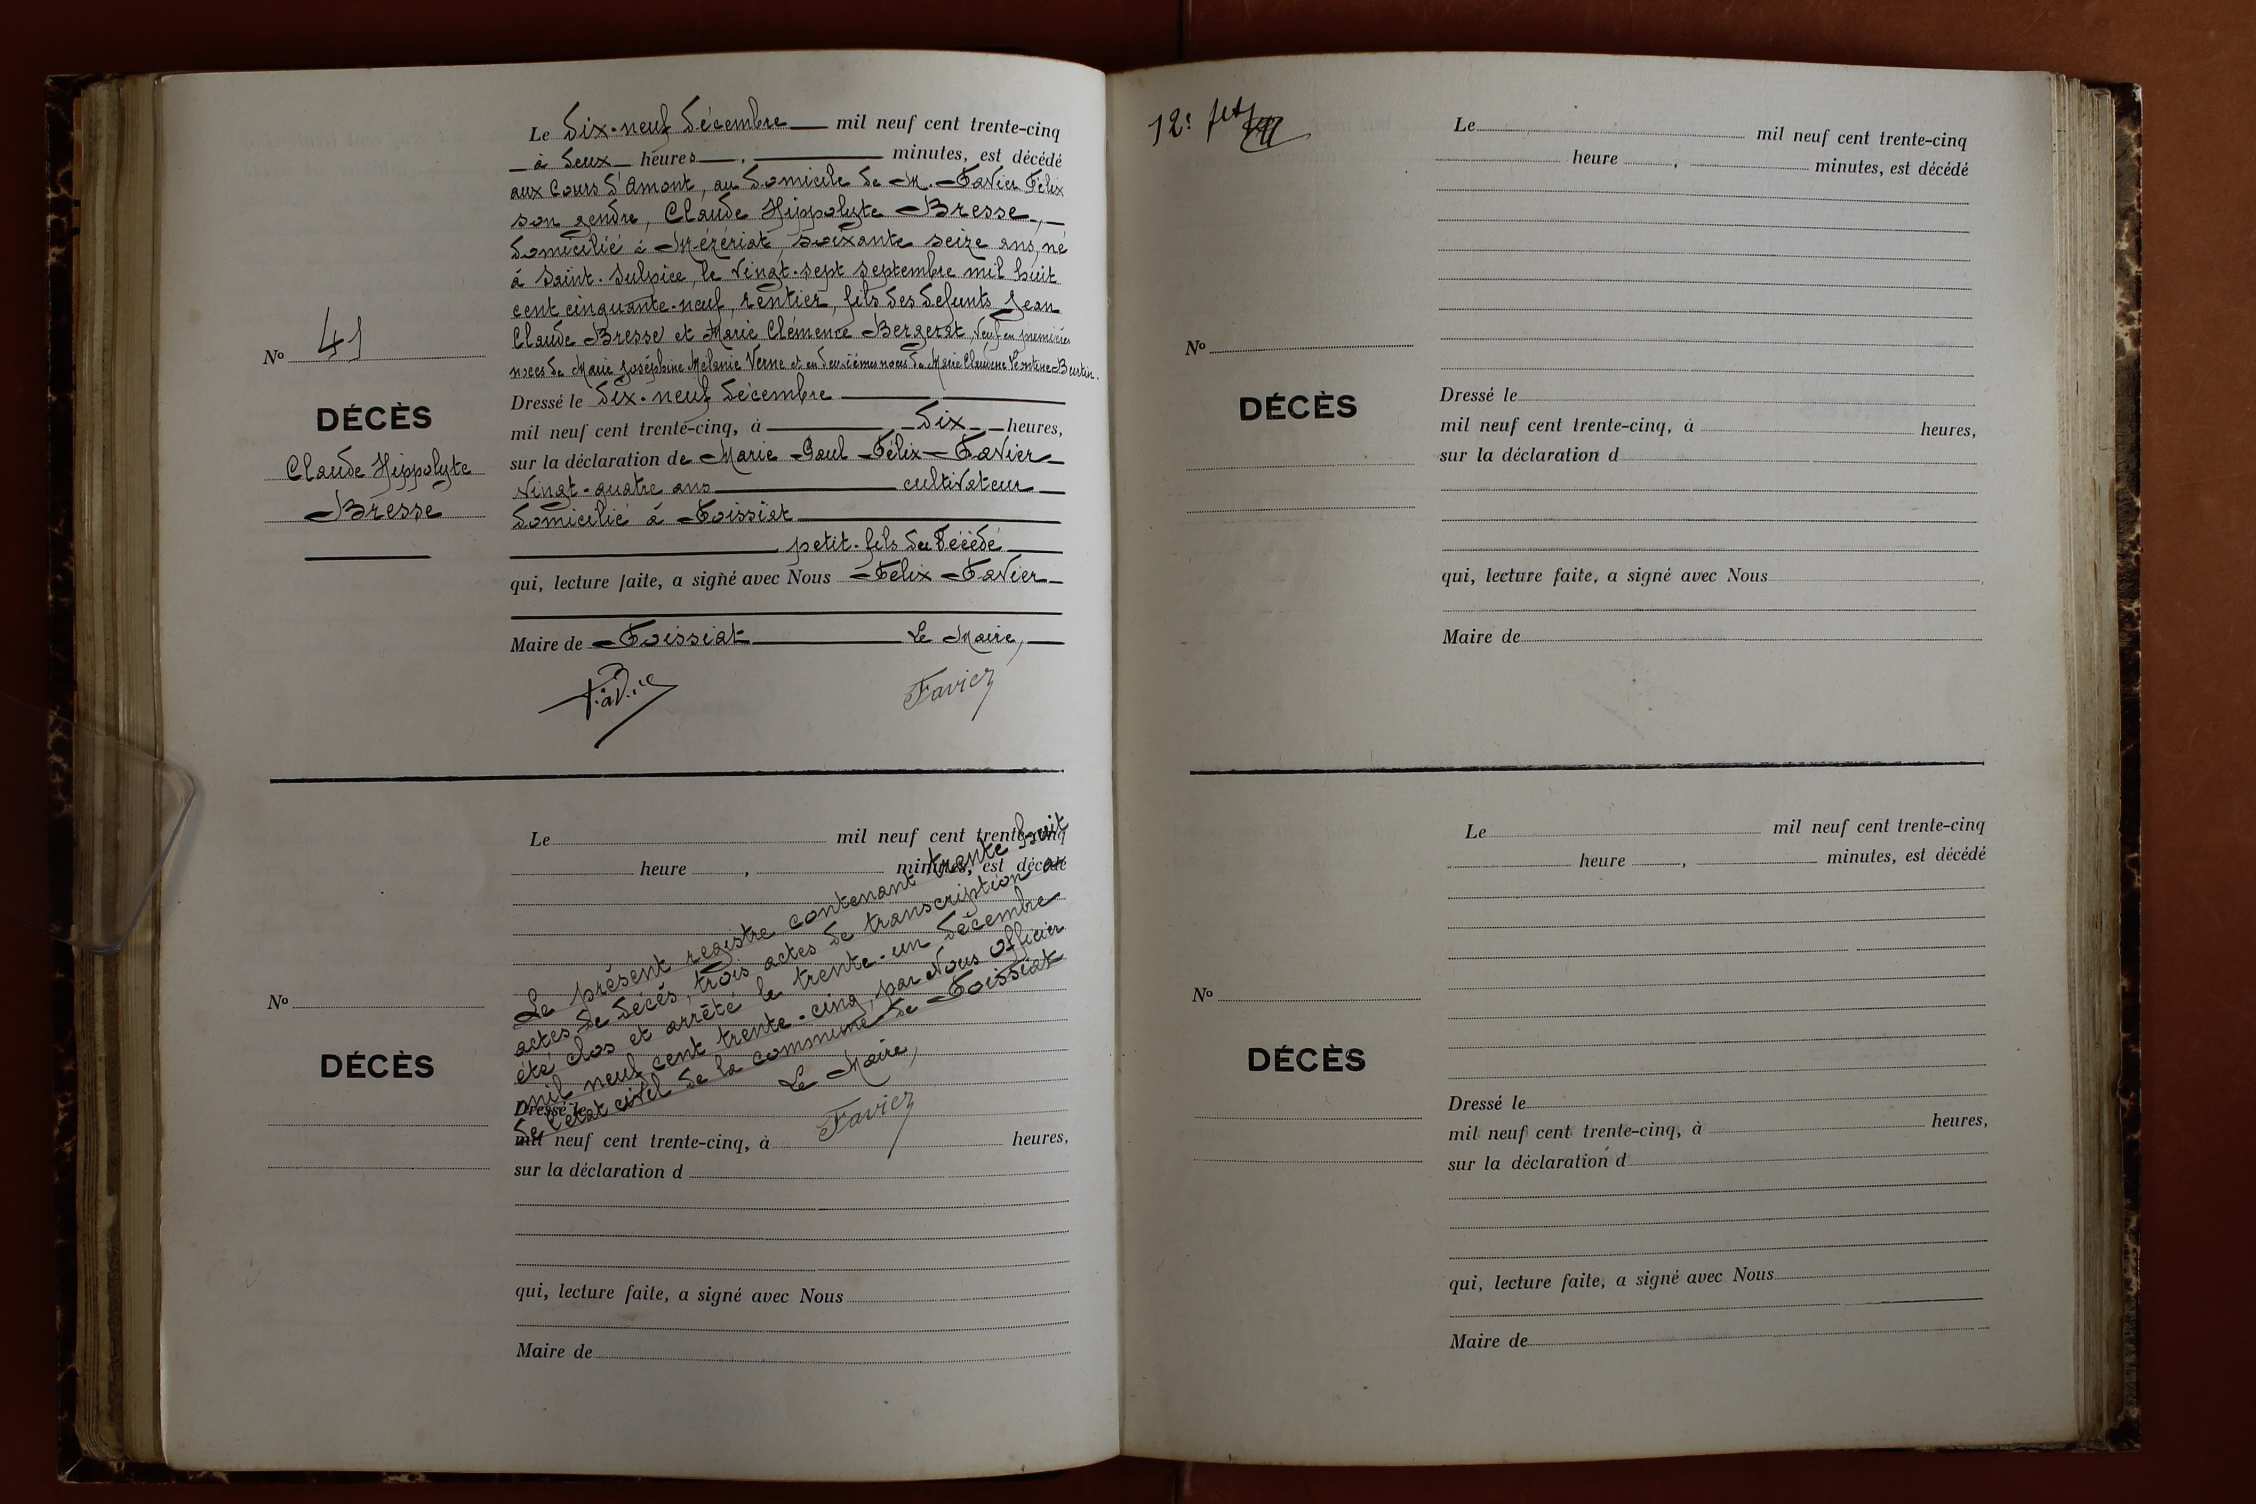 Le Dix-neuf Décembre mil neuf cent trente-cinq
à Deux heures , minutes, est décédé
aux Cours d'Amont, au Domicile de M. Favier Félix
son gendre, Claude Hippolyte Bresse,
Domicilié à Mézériat, soixante seize ans, né
à Saint-Sulpice, le vingt-sept septembre mil huit
cent cinquante-neuf, rentier, fils des défunts Jean
Claude Bresse et Marie Clémence Bergerat, Veuf en premières
noces de Marie Joséphine Mélanie Verne et en deuxièmes noces de Marie Claudine Léontine Burtin.
No 41
DÉCÈS
Claude Hippolyte
Bresse
Dressé le Dix-neuf Décembre
mil neuf cent trente-cinq, à Dix heures,
sur la déclaration de Marie Paul Félix Favier
vingt-quatre ans cultivateur
domicilié à Foissiat
petit-fils du Décédé
qui, lecture faite, a signé avec Nous Félix Favier
Maire de Foissiat Le Maire,
Favier
Le mil neuf cent trente-cinq
heure , minutes, est décédé
Le présent registre contenant trente huit
actes de décès, trois actes de transcription a
été clos et arrêté le trente-un décembre
mil neuf cent trente-cinq, par Nous Officier
de l'état civil de la commune de Foissiat
Le Maire,
Favier
No
DÉCÈS
Dressé le
mil neuf cent trente-cinq, à heures,
sur la déclaration d
qui, lecture faite, a signé avec Nous
Maire de
12e
Le mil neuf cent trente-cinq
heure , minutes, est décédé
No
DÉCÈS
Dressé le
mil neuf cent trente-cinq, à heures,
sur la déclaration d
qui, lecture faite, a signé avec Nous
Maire de
Le mil neuf cent trente-cinq
heure , minutes, est décédé
No
DÉCÈS
Dressé le
mil neuf cent trente-cinq, à heures,
sur la déclaration d
qui, lecture faite, a signé avec Nous
Maire de